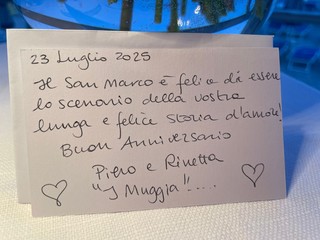 23 Luglio 2025
Il San Marco è felice di essere
lo scenario della vostra
lunga e felice storia d'amore!
Buon Anniversario
Piero e Rinetta
"I Muggia"!....